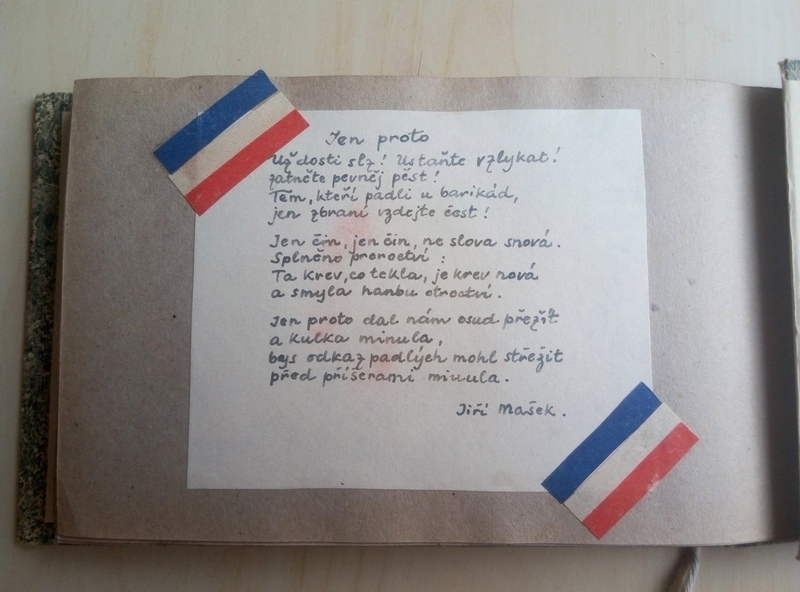 Jen proto
Už dosti slz! Ustaňte vzlykat!
zatněte pevněj pěst!
Těm, kteří padli u barikád,
jen zbraní vzdejte čest!
Jen čin, jen čin, ne slova snová.
Splněno proroctví:
Ta krev, co tekla, je krev nová
a smyla hanbu otroctví.
Jen proto dal nám osud přežít
a kulka minula,
bys odkaz padlých mohl střežit
před příšerami minula.
Jiří Mašek.